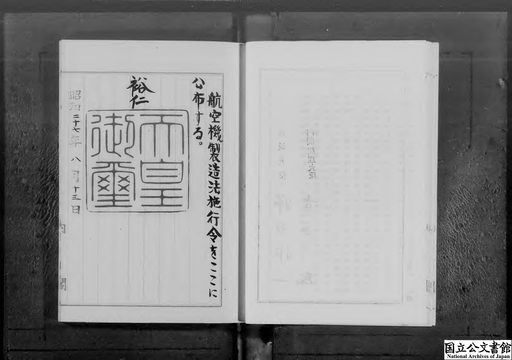 航空機製造法施行令をここに
公布する。
裕仁
天皇
御璽
昭和二十七年八月十三日
内閣
国立公文書館
National Archives of Japan